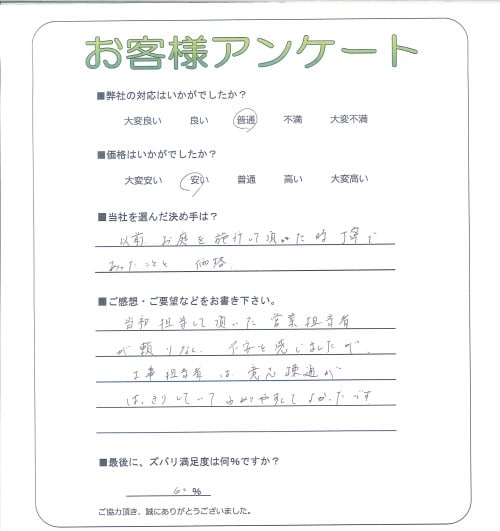 お客様アンケート
■弊社の対応はいかがでしたか？
大変良い 良い 普通 不満 大変不満
■価格はいかがでしたか？
大変安い 安い 普通 高い 大変高い
■当社を選んだ決め手は？
以前、お庭を施行して頂いた時丁寧で
あったことと 価格.
■ご感想・ご要望などをお書き下さい。
当初担当して頂いた営業担当者
が頼りなく、不安を感じましたが、
工事担当者は、意思疎通が
はっきりしていてわかりやすくてよかったです
■最後に、ズバリ満足度は何%ですか？
60 %
ご協力頂き、誠にありがとうございました。